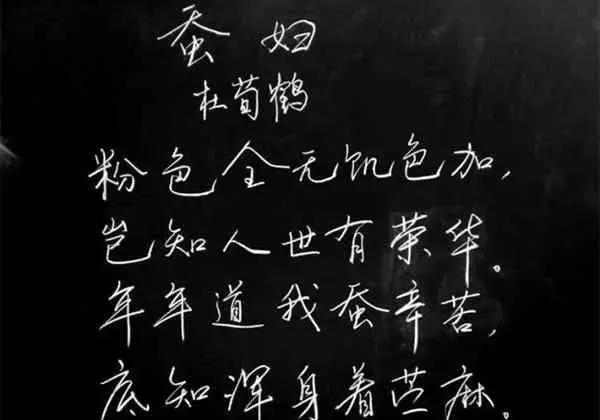 蚕妇
杜荀鹤
粉色全无饥色加，
岂知人世有荣华。
年年道我蚕辛苦，
底知浑身着苎麻。